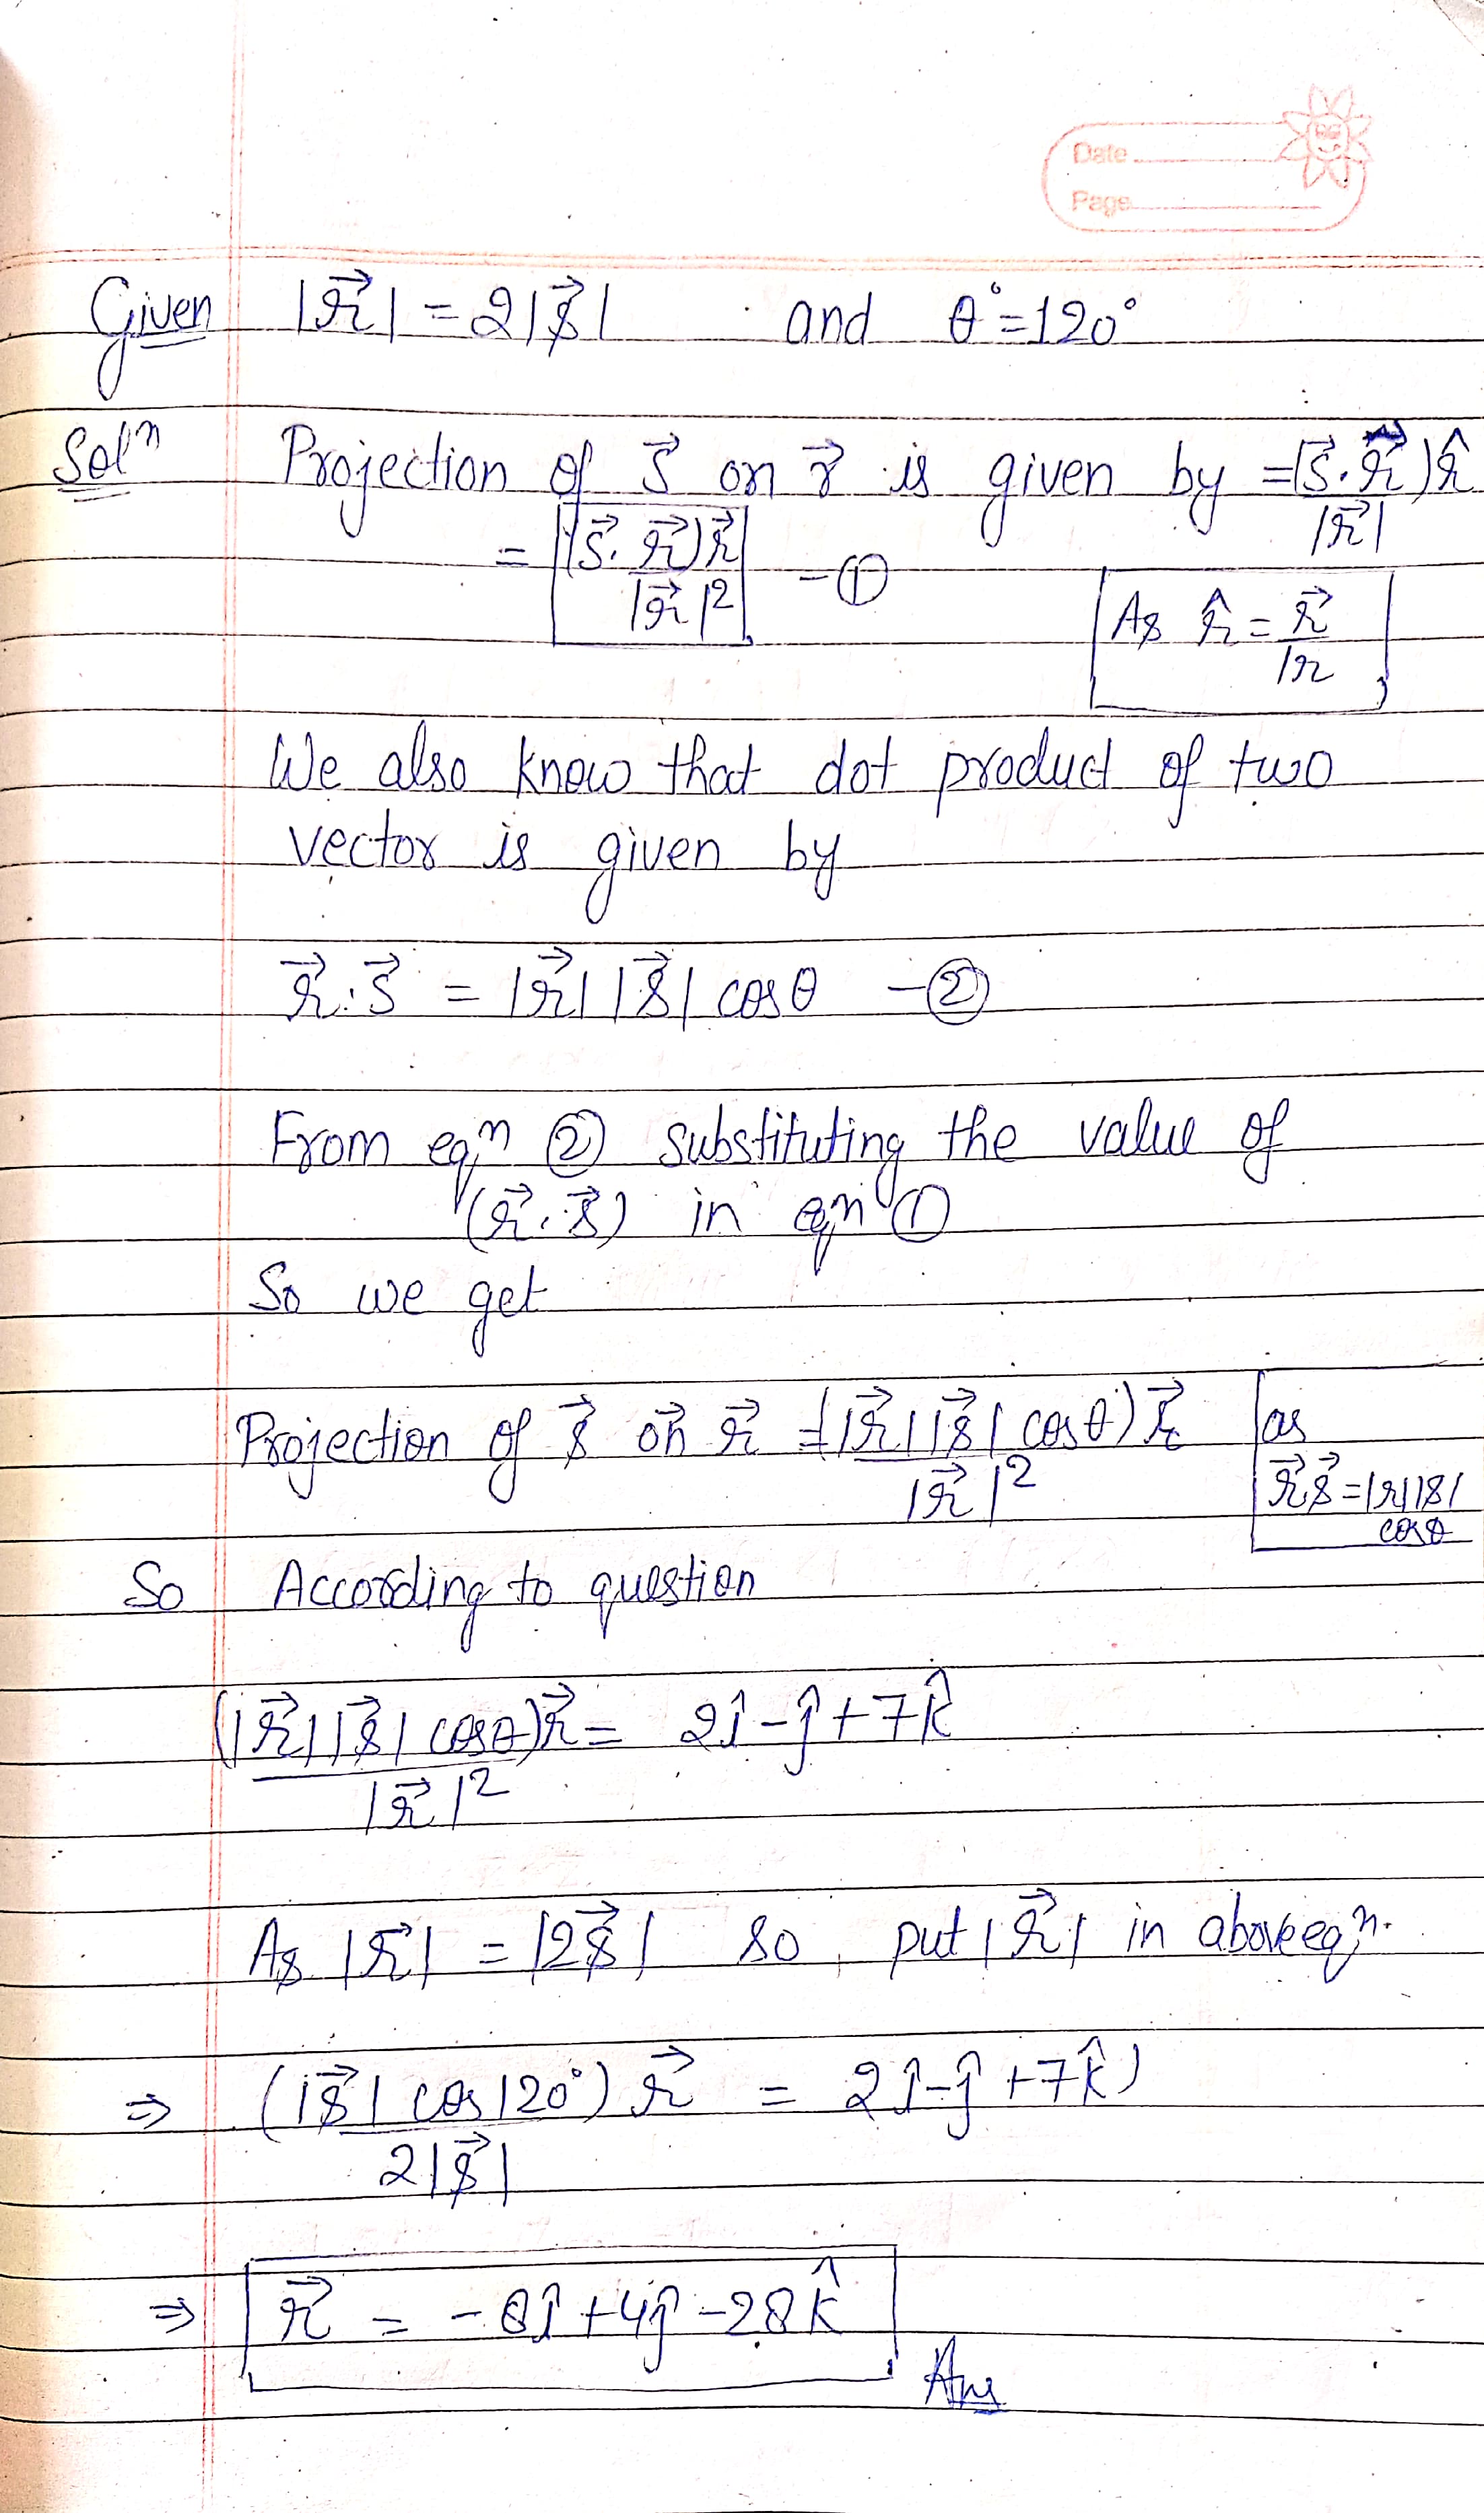 Date
Page
Given |r⃗| = 2|s⃗| and θ° = 120°
Solⁿ Projection of s⃗ on r⃗ is given by = (s⃗.r⃗)r̂
|r⃗|
= (s⃗.r⃗)r⃗ - ①
|r⃗|²
As r̂ = r⃗
|r
We also know that dot product of two
vector is given by
r⃗.s⃗ = |r⃗||s⃗| cosθ - ②
From eqⁿ ② substituting the value of
(r⃗.s⃗) in eqⁿ ①
So we get
Projection of s⃗ on r⃗ = (|r⃗||s⃗| cosθ) r⃗
|r⃗|²
as
r⃗s⃗ = |r||s|
cosθ
So According to question
(|r⃗||s⃗| cosθ)r⃗ = 2î - ĵ + 7k̂
|r⃗|²
As |r⃗| = |2s⃗| so, put |r⃗| in above eqⁿ.
⇒ (|s⃗| cos 120°) r⃗ = 2î - ĵ + 7k̂)
2|s⃗|
⇒ r⃗ = -8î + 4ĵ - 28k̂
Ans